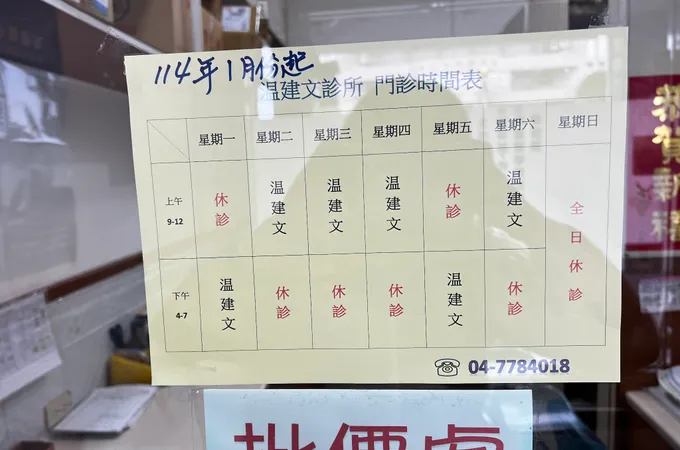 114年1月份起
温建文診所 門診時間表
星期一 星期二 星期三 星期四 星期五 星期六 星期日
上午 9-12 休診 温建文 温建文 温建文 休診 温建文 全日休診
下午 4-7 温建文 休診 休診 休診 温建文 休診
☏ 04-7784018
批價處
恭賀新禧